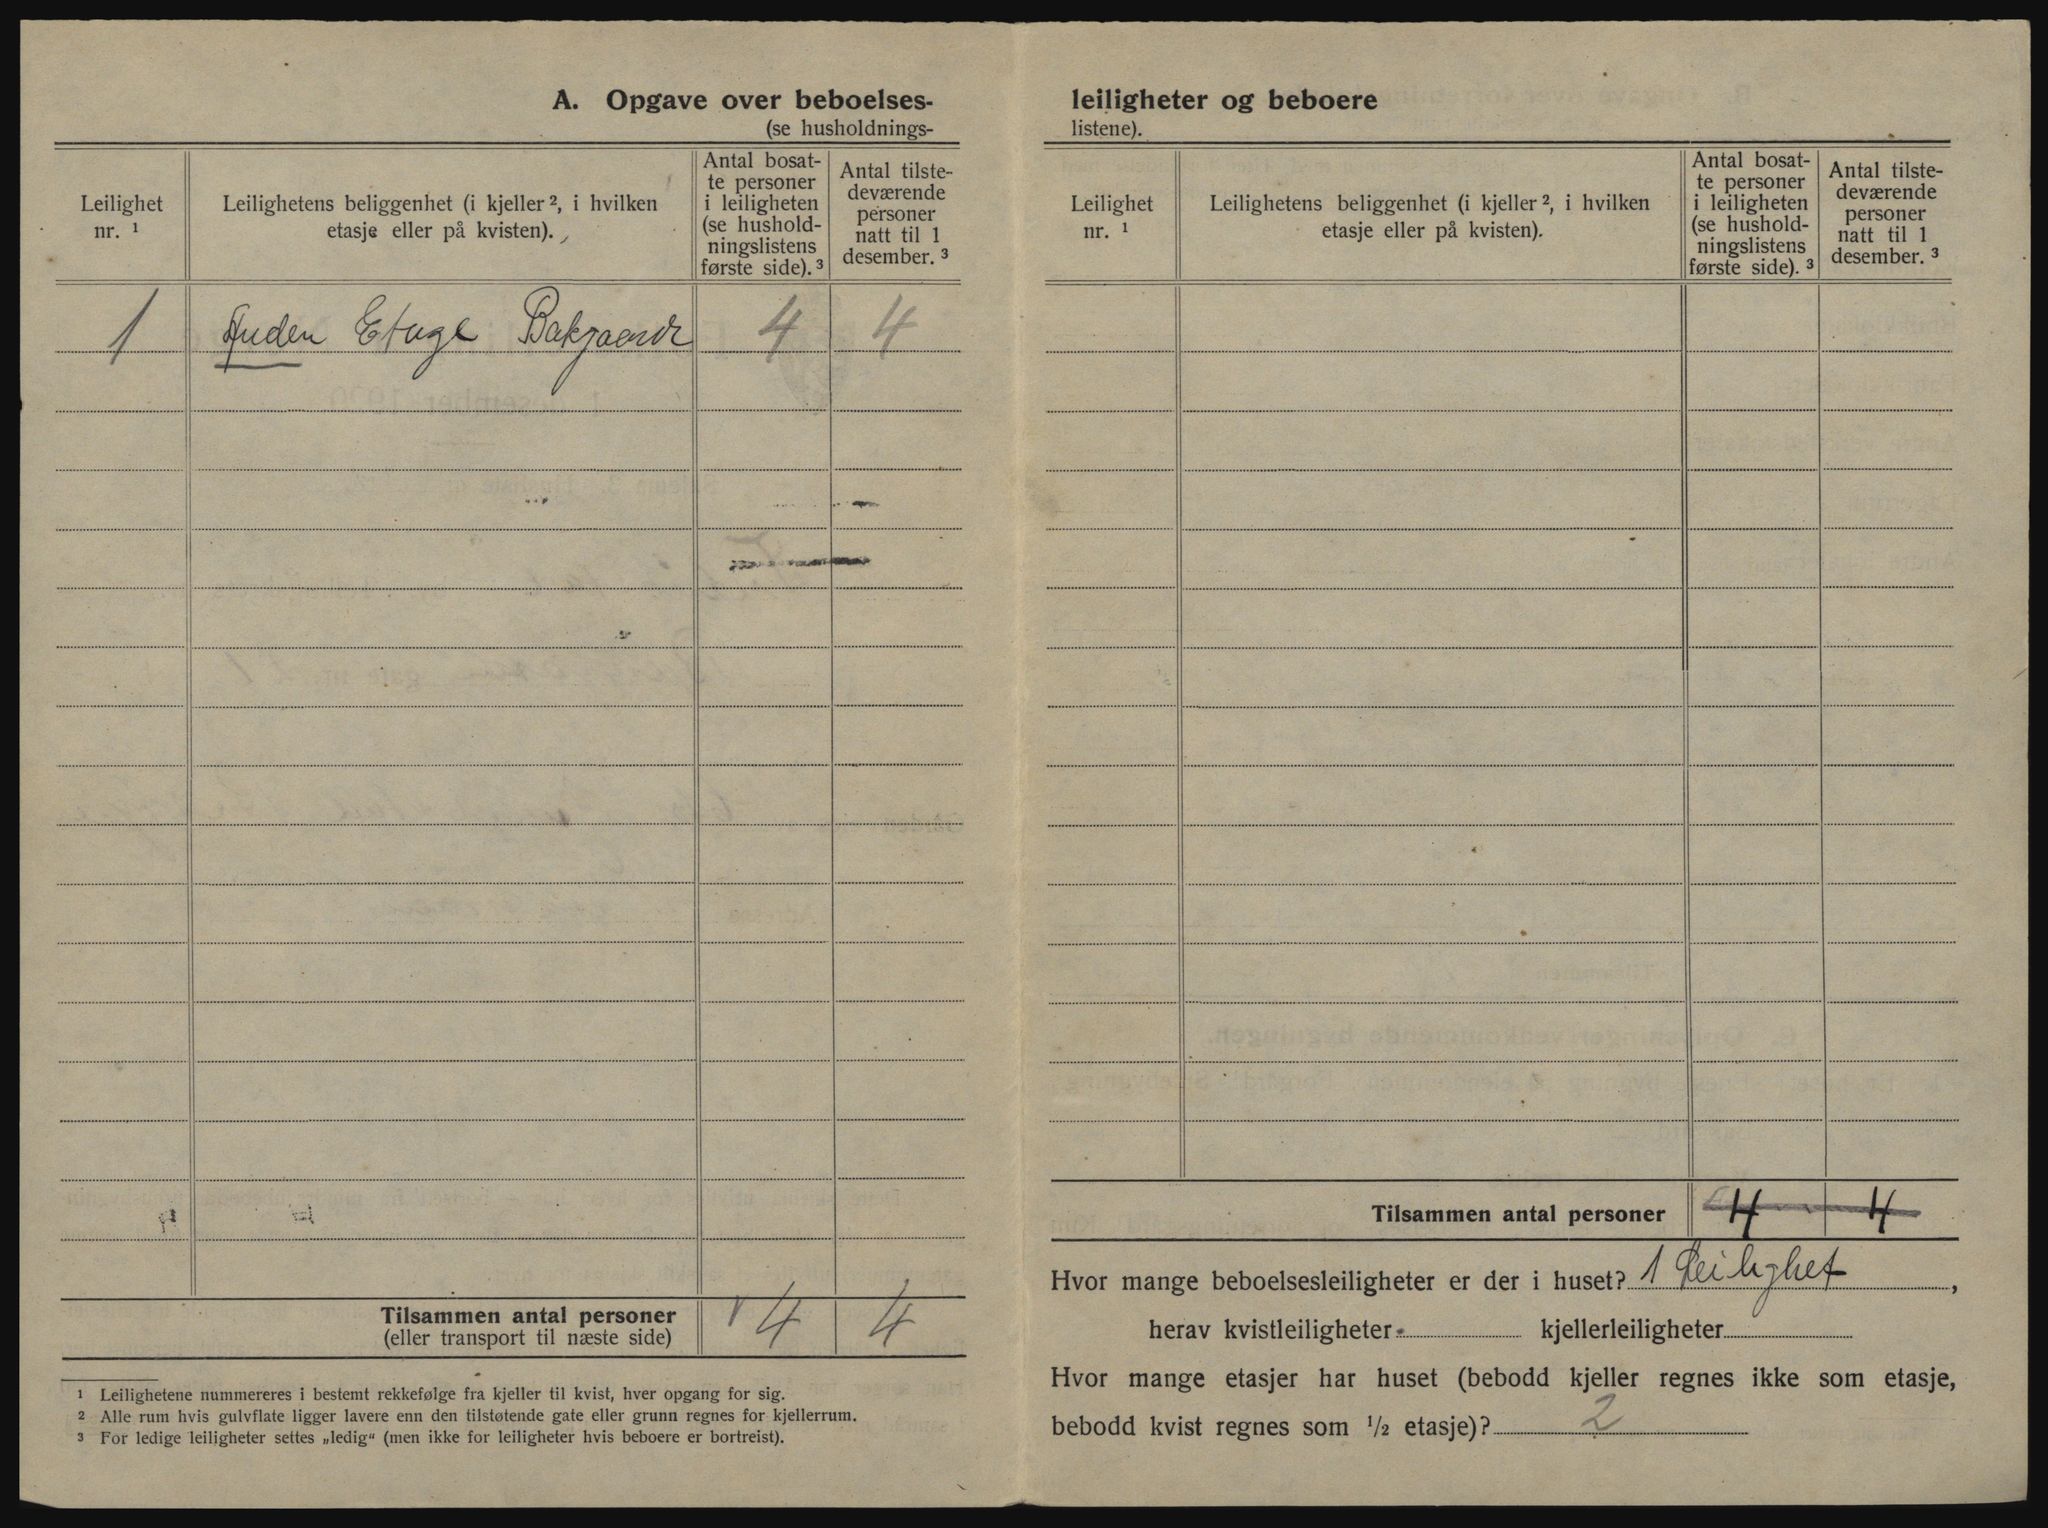 A. Opgave over beboelses-
(se husholdnings-
Leilighet
nr. ¹
Leilighetens beliggenhet (i kjeller ², i hvilken
etasje eller på kvisten).
Antal bosat-
te personer
i leiligheten
(se hushold-
ningslistens
første side). ³
Antal tilste-
deværende
personer
natt til 1
desember. ³
1 Anden Etage Bakgaard 4 4
Tilsammen antal personer 4 4
(eller transport til næste side)
¹ Leilighetene nummereres i bestemt rekkefølge fra kjeller til kvist, hver opgang for sig.
² Alle rum hvis gulvflate ligger lavere enn den tilstøtende gate eller grunn regnes for kjellerrum.
³ For ledige leiligheter settes „ledig“ (men ikke for leiligheter hvis beboere er bortreist).
leiligheter og beboere
listene).
Leilighet
nr. ¹
Leilighetens beliggenhet (i kjeller ², i hvilken
etasje eller på kvisten).
Antal bosat-
te personer
i leiligheten
(se hushold-
ningslistens
første side). ³
Antal tilste-
deværende
personer
natt til 1
desember. ³
Tilsammen antal personer 4 4
Hvor mange beboelsesleiligheter er der i huset? 1 Leilighet,
herav kvistleiligheter kjellerleiligheter
Hvor mange etasjer har huset (bebodd kjeller regnes ikke som etasje,
bebodd kvist regnes som ½ etasje)? 2